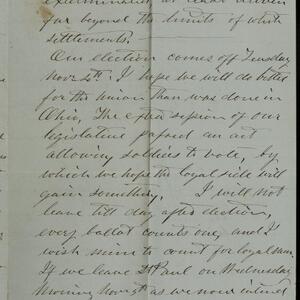 exterminated, at least driven
far beyond the limits of white
settlements.
Our election comes off Tuesday
Nov 4th. I hope we will do better
for the Union than was done in
Ohio, The extra session of our
legislature passed an act
allowing soldiers to vote, by
which we hope the loyal side will
gain something, I will not
leave till day after election,
every ballot counts one, and I
wish mine to count for loyalism.
If we leave St Paul on Wednesday
morning Nov 5th as we now intend